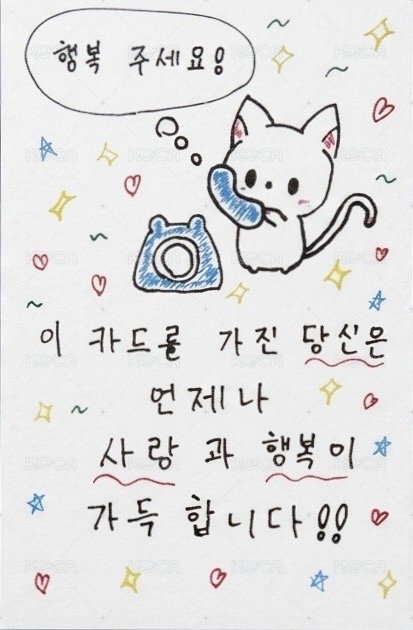 행복 주세요!
이 카드를 가진 당신은
언제나
사랑과 행복이
가득 합니다!!